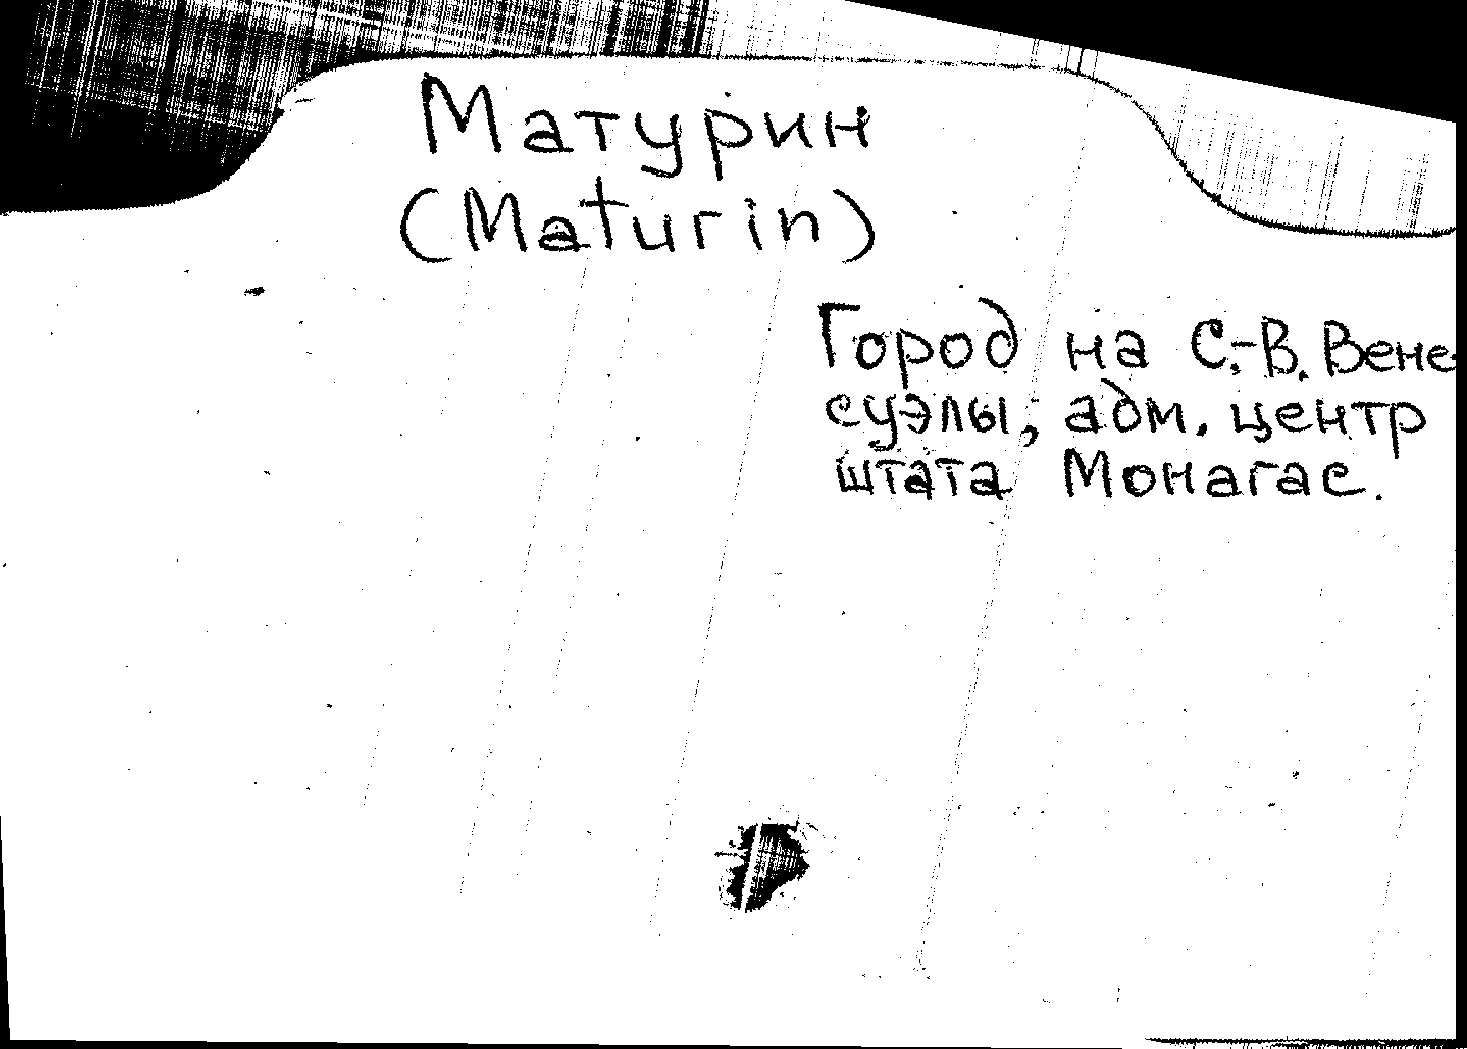 Матурин
(Maturin)
Город на С.-В. Вене-
суэлы, адм. центр
штата Монагас.